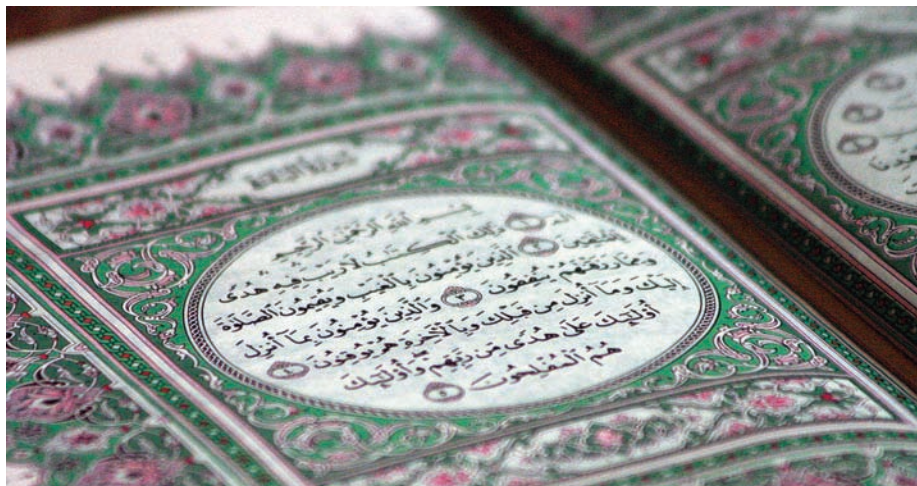 سورة البقرة
بِسْمِ اللَّهِ الرَّحْمَٰنِ الرَّحِيمِ
الٓمٓ ۝١ ذَٰلِكَ الْكِتَٰبُ لَا رَيْبَ فِيهِ هُدًى
لِّلْمُتَّقِينَ ۝٢ الَّذِينَ يُؤْمِنُونَ بِالْغَيْبِ وَيُقِيمُونَ الصَّلَوٰةَ
وَمِمَّا رَزَقْنَٰهُمْ يُنفِقُونَ ۝٣ وَالَّذِينَ يُؤْمِنُونَ بِمَآ أُنزِلَ
إِلَيْكَ وَمَآ أُنزِلَ مِن قَبْلِكَ وَبِالْءَاخِرَةِ هُمْ يُوقِنُونَ ۝٤
أُو۟لَٰٓئِكَ عَلَىٰ هُدًى مِّن رَّبِّهِمْ وَأُو۟لَٰٓئِكَ
هُمُ الْمُفْلِحُونَ ۝٥